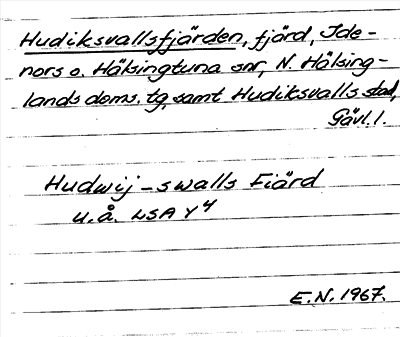 Hudiksvallsfjärden, fjärd, Ide-
nors o. Hälsingtuna snr, N. Hälsing-
lands doms. tg, samt Hudiksvalls stad,
Gävl. l.
Hudwij-swalls Fiärd
u.å. LSA Y4
E.N. 1967.